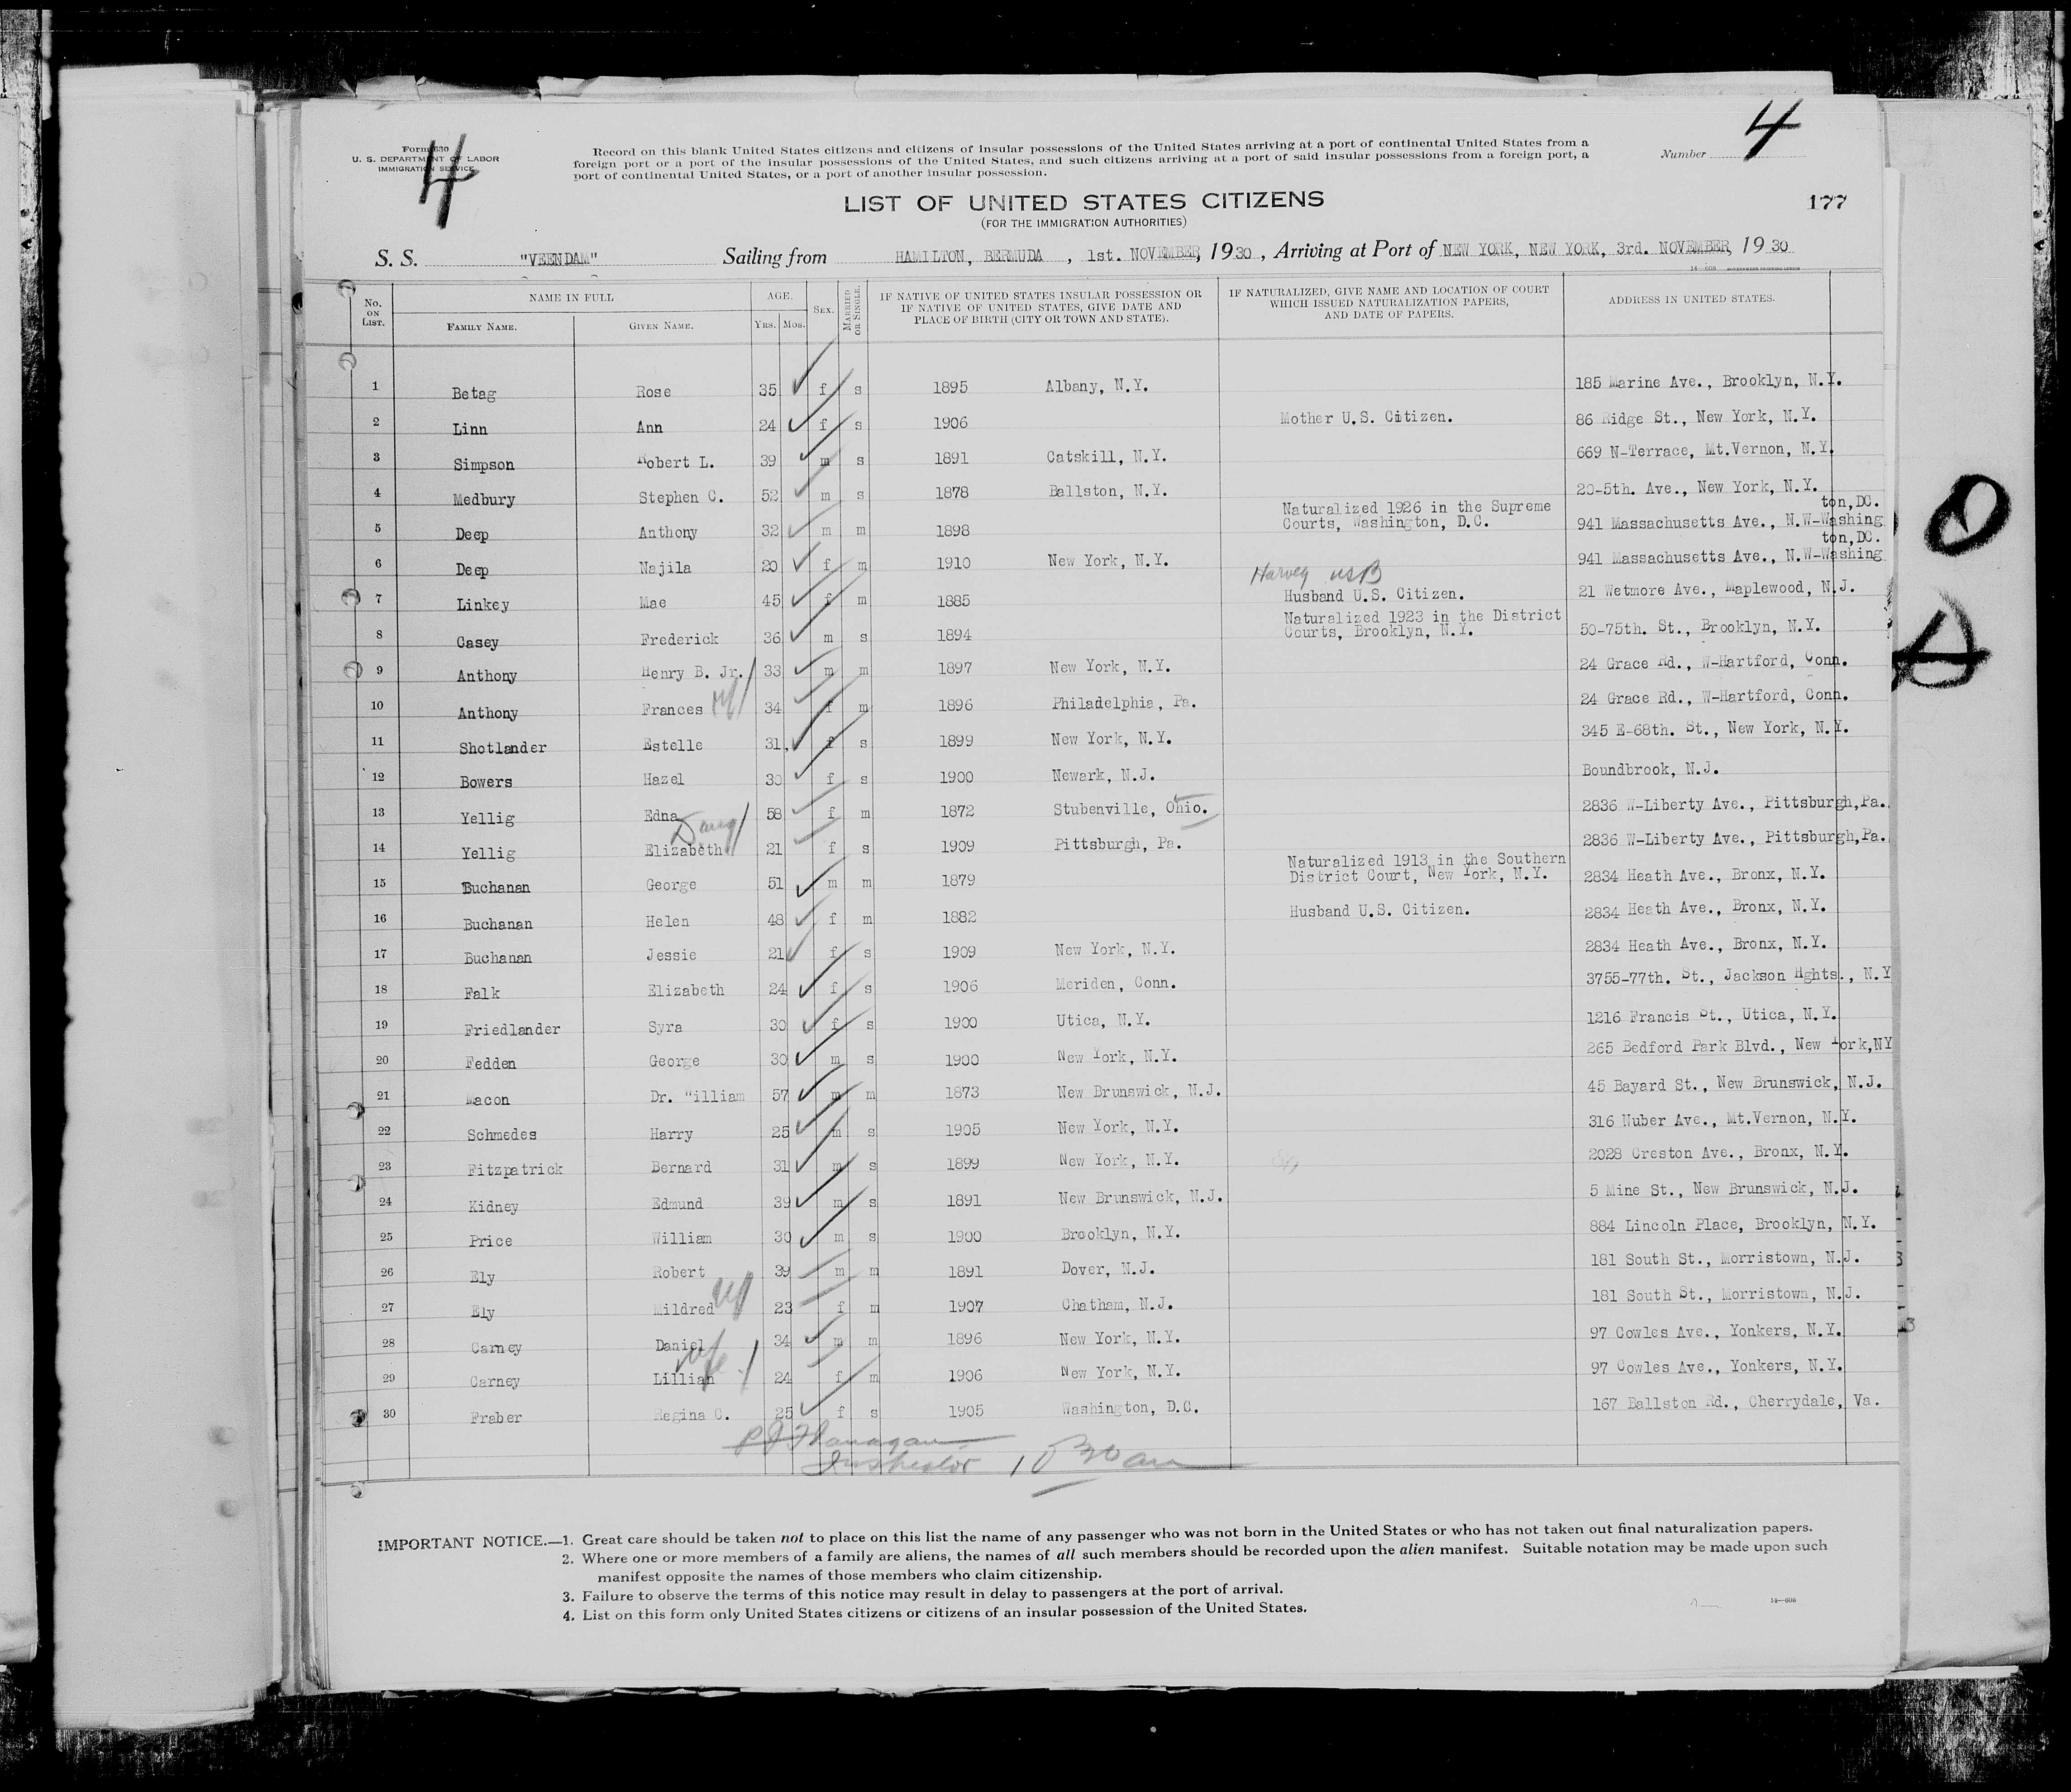 4
4
Form 630
U. S. DEPARTMENT OF LABOR
IMMIGRATION SERVICE
Record on this blank United States citizens and citizens of insular possessions of the United States arriving at a port of continental United States from a
foreign port or a port of the insular possessions of the United States, and such citizens arriving at a port of said insular possessions from a foreign port, a
port of continental United States, or a port of another insular possession.
Number
LIST OF UNITED STATES CITIZENS
(FOR THE IMMIGRATION AUTHORITIES)
177
S. S. "VEENDAM" Sailing from HAMILTON, BERMUDA , 1st. NOVEMBER, 1930 , Arriving at Port of NEW YORK, NEW YORK, 3rd. NOVEMBER, 1930
14—608 GOVERNMENT PRINTING OFFICE
No. ON LIST. NAME IN FULL FAMILY NAME. GIVEN NAME. AGE. YRS. MOS. SEX. MARRIED OR SINGLE. IF NATIVE OF UNITED STATES INSULAR POSSESSION OR IF NATIVE OF UNITED STATES, GIVE DATE AND PLACE OF BIRTH (CITY OR TOWN AND STATE). IF NATURALIZED, GIVE NAME AND LOCATION OF COURT WHICH ISSUED NATURALIZATION PAPERS, AND DATE OF PAPERS. ADDRESS IN UNITED STATES.
1 Betag Rose 35 f s 1895 Albany, N.Y. 185 Marine Ave., Brooklyn, N.Y.
2 Linn Ann 24 f s 1906 Mother U.S. Citizen. 86 Ridge St., New York, N.Y.
3 Simpson Robert L. 39 m s 1891 Catskill, N.Y. 669 N-Terrace, Mt.Vernon, N.Y.
4 Medbury Stephen C. 52 m s 1878 Ballston, N.Y. 20-5th. Ave., New York, N.Y.
5 Deep Anthony 32 m m 1898 Naturalized 1926 in the Supreme Courts, Washington, D.C. 941 Massachusetts Ave., N.W-Washington,DC.
6 Deep Najila 20 f m 1910 New York, N.Y. 941 Massachusetts Ave., N.W-Washington,DC.
Harvey USB
7 Linkey Mae 45 f m 1885 Husband U.S. Citizen. 21 Wetmore Ave., Maplewood, N.J.
8 Casey Frederick 36 m s 1894 Naturalized 1923 in the District Courts, Brooklyn, N.Y. 50-75th. St., Brooklyn, N.Y.
9 Anthony Henry B. Jr. 33 m m 1897 New York, N.Y. 24 Grace Rd., W-Hartford, Conn.
10 Anthony Frances 34 f m 1896 Philadelphia, Pa. 24 Grace Rd., W-Hartford, Conn.
11 Shotlander Estelle 31 f s 1899 New York, N.Y. 345 E-68th. St., New York, N.Y.
12 Bowers Hazel 30 f s 1900 Newark, N.J. Boundbrook, N.J.
13 Yellig Edna 58 f m 1872 Stubenville, Ohio. 2836 W-Liberty Ave., Pittsburgh,Pa.
Daug
14 Yellig Elizabeth 21 f s 1909 Pittsburgh, Pa. 2836 W-Liberty Ave., Pittsburgh,Pa.
15 Buchanan George 51 m m 1879 Naturalized 1913 in the Southern District Court, New York, N.Y. 2834 Heath Ave., Bronx, N.Y.
16 Buchanan Helen 48 f m 1882 Husband U.S. Citizen. 2834 Heath Ave., Bronx, N.Y.
17 Buchanan Jessie 21 f s 1909 New York, N.Y. 2834 Heath Ave., Bronx, N.Y.
18 Falk Elizabeth 24 f s 1906 Meriden, Conn. 3755-77th. St., Jackson Hghts., N.Y
19 Friedlander Syra 30 f s 1900 Utica, N.Y. 1216 Francis St., Utica, N.Y.
20 Fedden George 30 m s 1900 New York, N.Y. 265 Bedford Park Blvd., New York,NY
21 Macon Dr. "illiam 57 m m 1873 New Brunswick, N.J. 45 Bayard St., New Brunswick, N.J.
22 Schmedes Harry 25 m s 1905 New York, N.Y. 316 Nuber Ave., Mt.Vernon, N.Y.
23 Fitzpatrick Bernard 31 m s 1899 New York, N.Y. 2028 Creston Ave., Bronx, N.Y.
24 Kidney Edmund 39 m s 1891 New Brunswick, N.J. 5 Mine St., New Brunswick, N.J.
25 Price William 30 m s 1900 Brooklyn, N.Y. 884 Lincoln Place, Brooklyn, N.Y.
26 Ely Robert 39 m m 1891 Dover, N.J. 181 South St., Morristown, N.J.
27 Ely Mildred 23 f m 1907 Chatham, N.J. 181 South St., Morristown, N.J.
28 Carney Daniel 34 m m 1896 New York, N.Y. 97 Cowles Ave., Yonkers, N.Y.
wfe
29 Carney Lillian 24 f m 1906 New York, N.Y. 97 Cowles Ave., Yonkers, N.Y.
30 Fraber Regina C. 25 f s 1905 Washington, D.C. 167 Ballston Rd., Cherrydale, Va.
P J Flanagan
Inspector
IMPORTANT NOTICE.—1. Great care should be taken not to place on this list the name of any passenger who was not born in the United States or who has not taken out final naturalization papers.
2. Where one or more members of a family are aliens, the names of all such members should be recorded upon the alien manifest. Suitable notation may be made upon such
manifest opposite the names of those members who claim citizenship.
3. Failure to observe the terms of this notice may result in delay to passengers at the port of arrival.
4. List on this form only United States citizens or citizens of an insular possession of the United States.
14—608